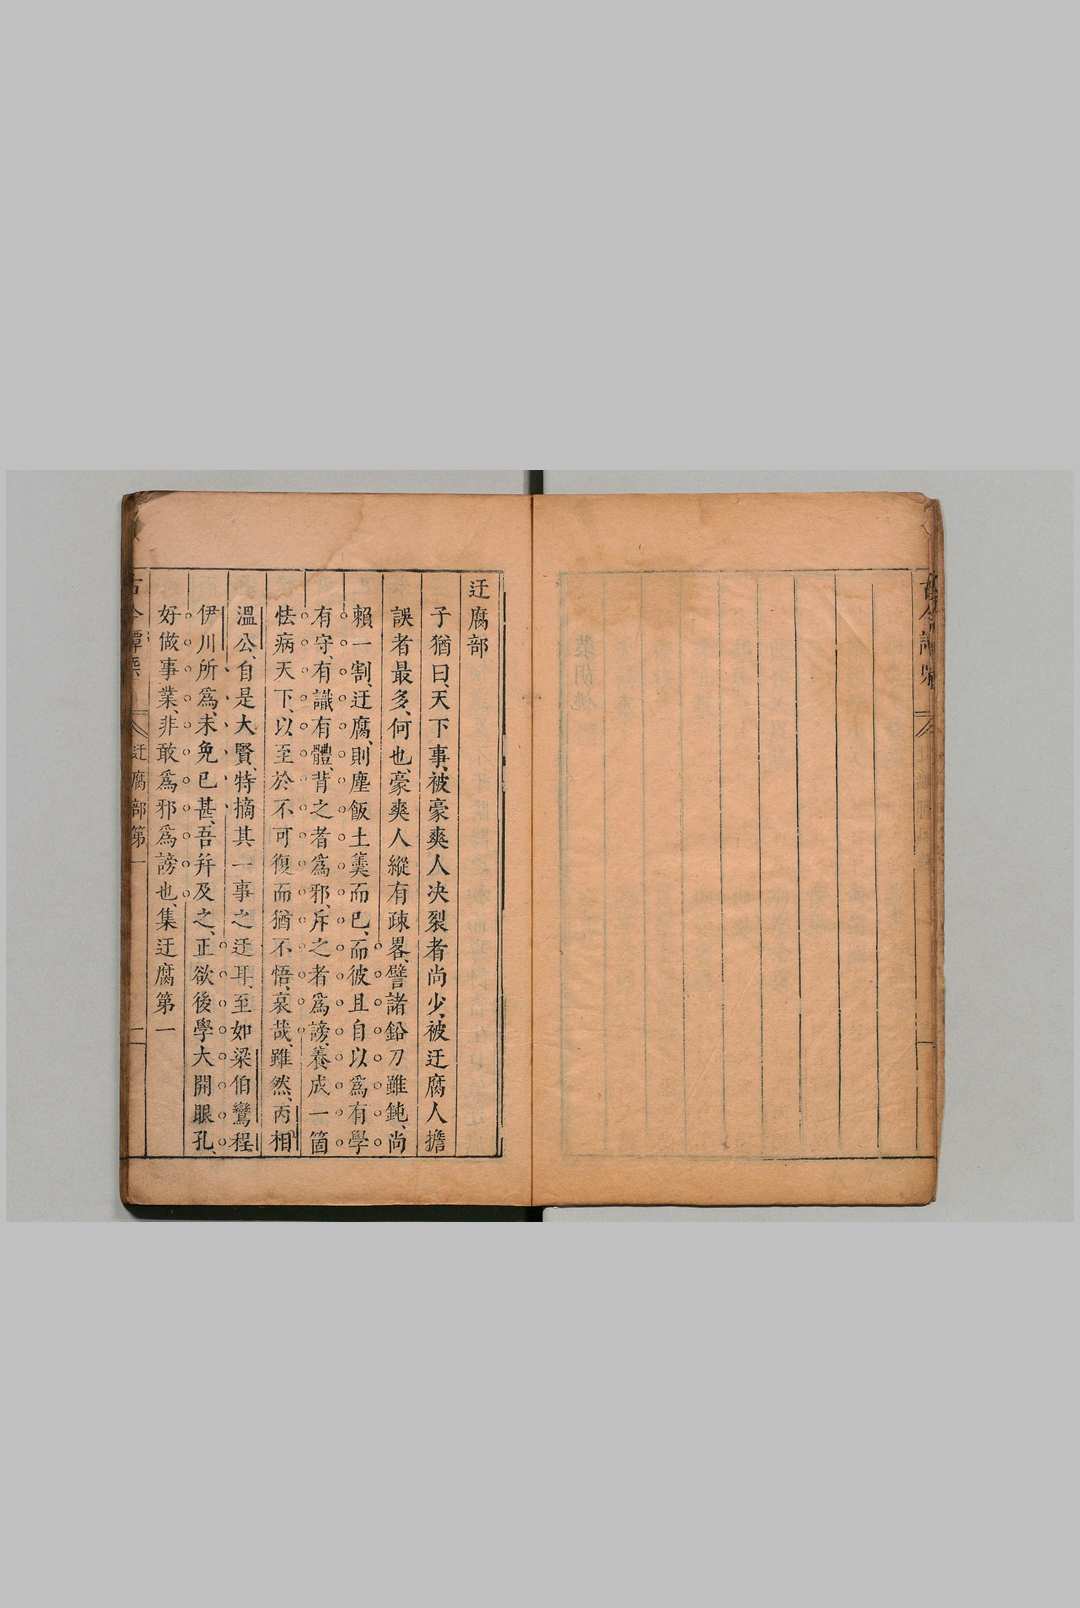 迂腐部
子猶曰、天下事、被豪爽人决裂者尚少、被迂腐人擔
誤者最多、何也、豪爽人縱有疎畧、譬諸鉛刀雖鈍、尚
賴一割、迂腐、則塵飯土羹而已、而彼且自以爲有學
有守、有識有體、背之者爲邪、斥之者爲謗、養成一箇
怯病天下、以至於不可復而猶不悟、哀哉、雖然、丙相
溫公、自是大賢、特摘其一事之迂耳、至如梁伯鸞程
伊川所爲、未免已甚、吾幷及之、正欲後學大開眼孔、
好做事業、非敢爲邪爲謗也、集迂腐第一
迂腐部第一
一